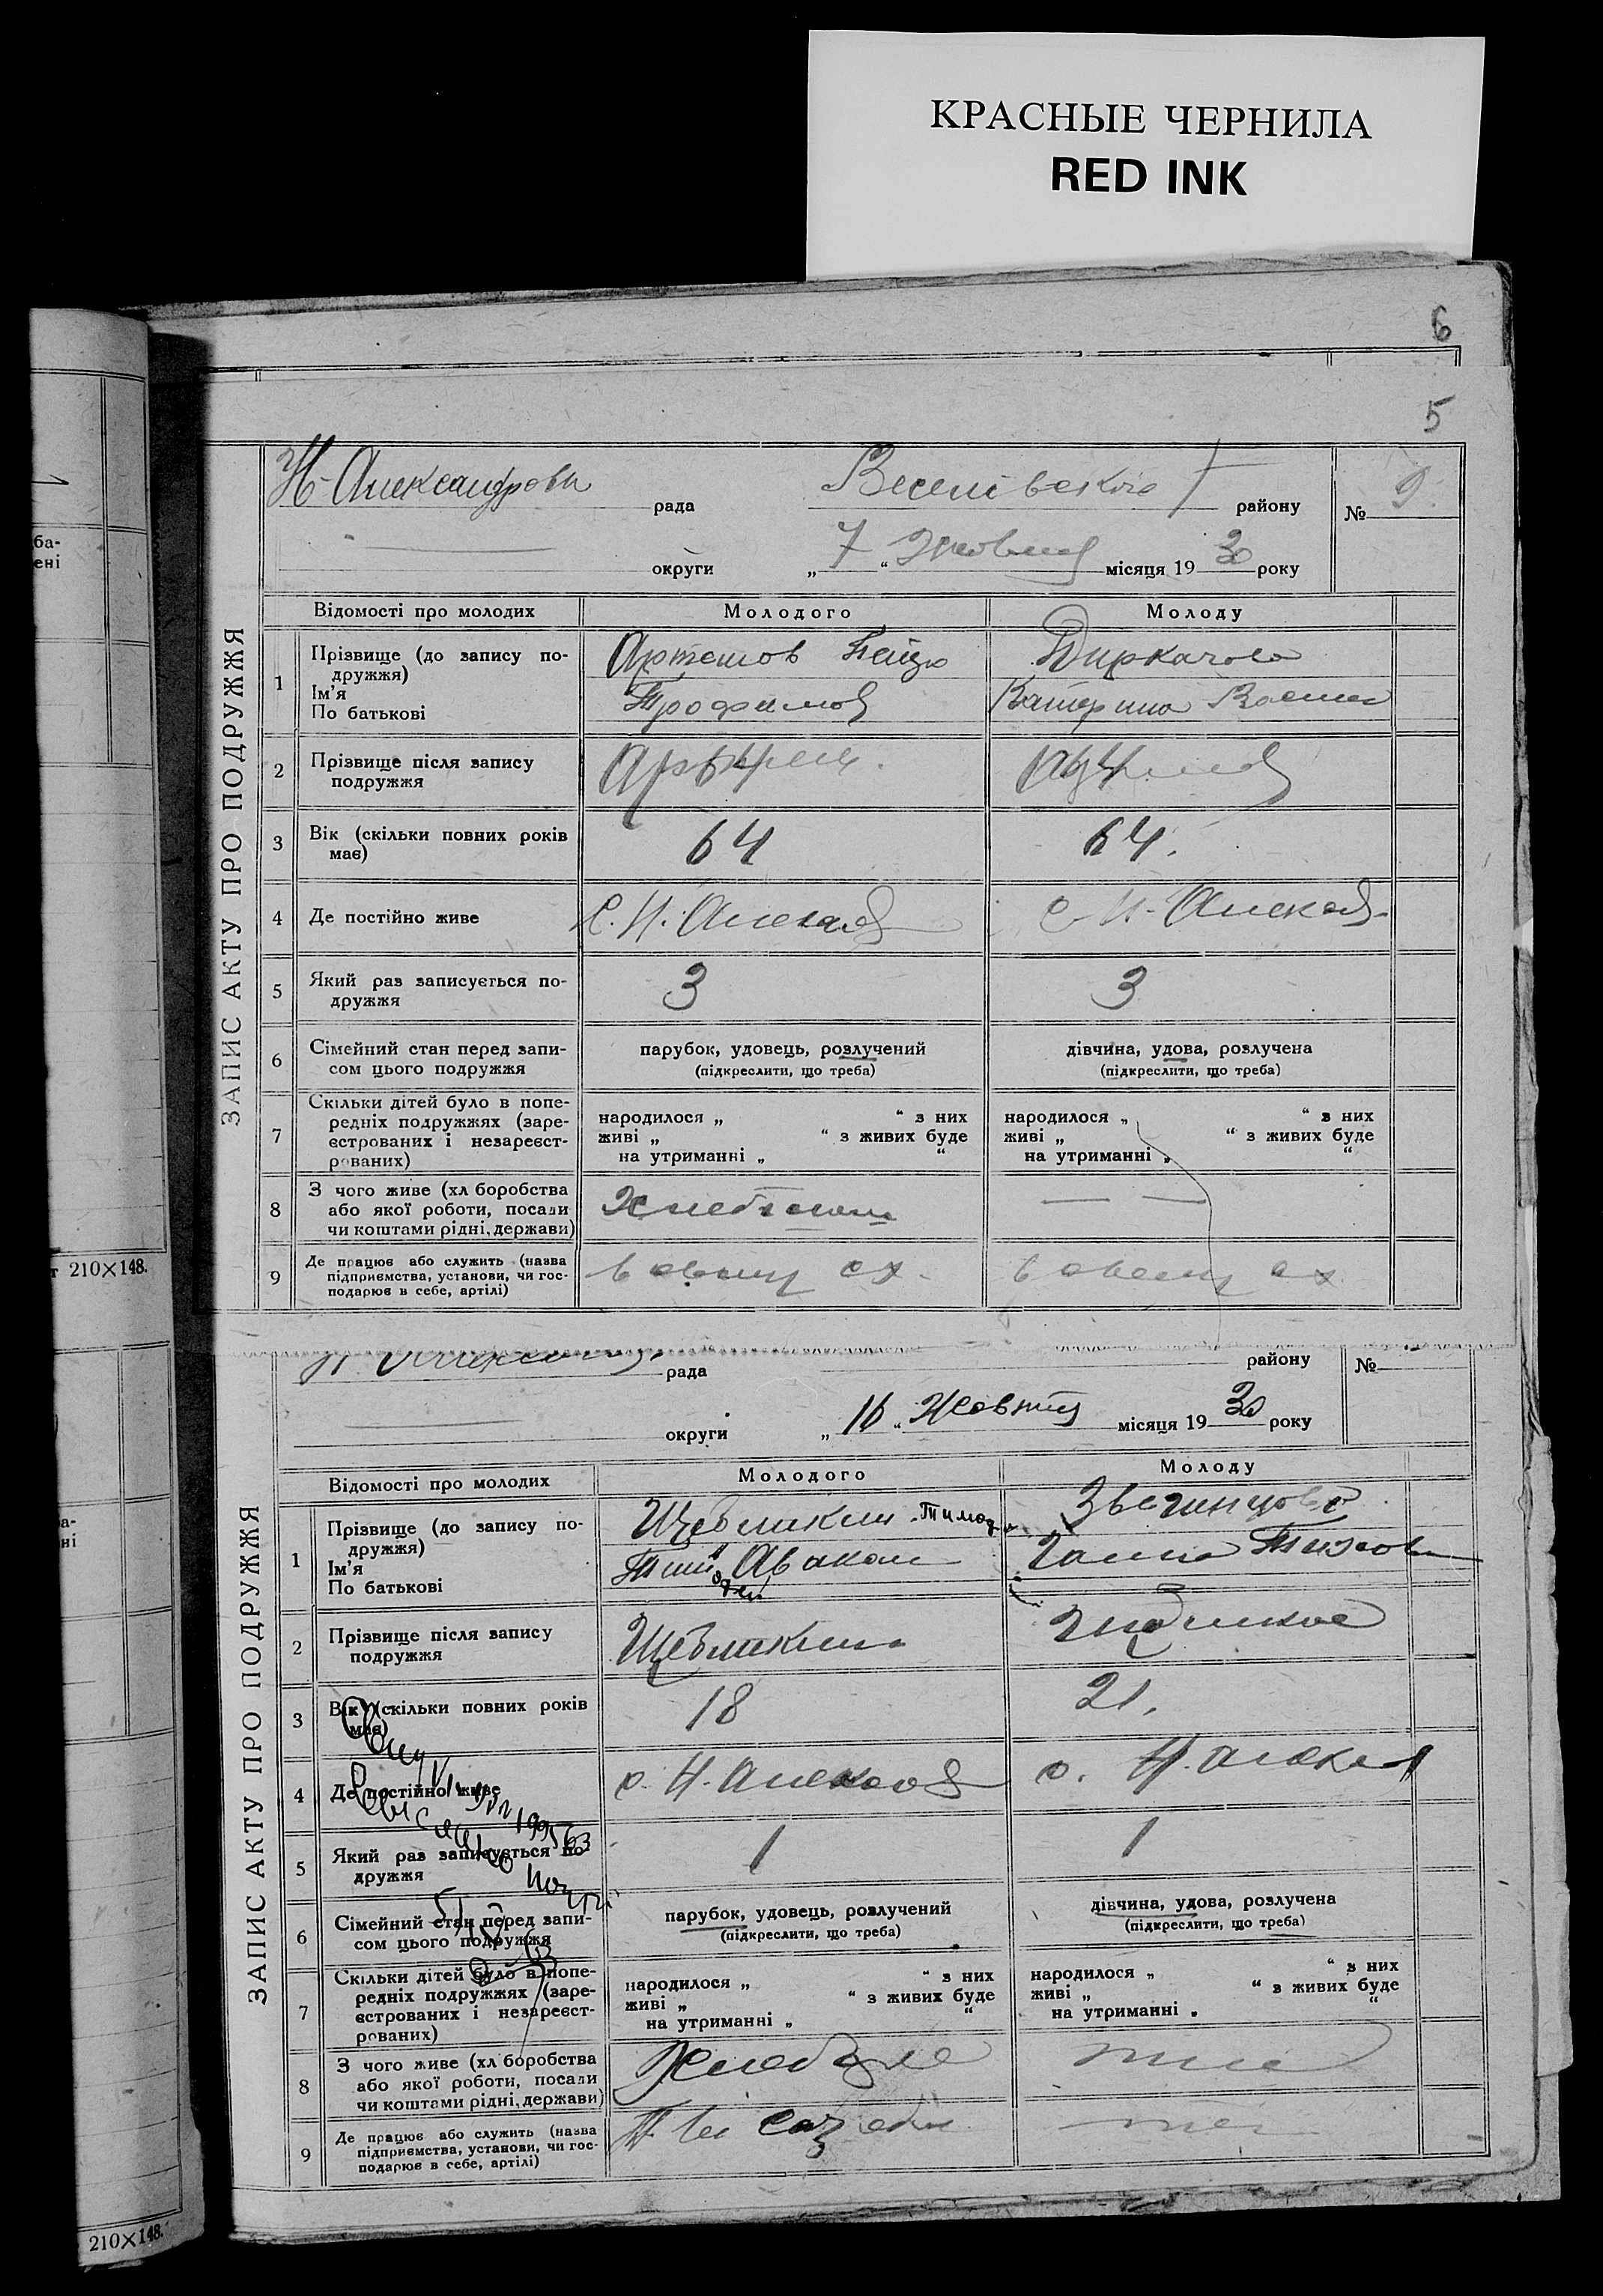 КРАСНЫЕ ЧЕРНИЛА
RED INK
6
5
ба-
ені
т 210×148.
а-
ні
210×148.
ЗАПИС АКТУ ПРО ПОДРУЖЖЯ
Н-Александровк рада Веселівского району № 9.
округи „ 7 “ Жовтня місяця 19 30 року
Відомості про молодих Молодого Молоду
1 Прізвище (до запису по-
дружжя)
Ім'я
По батькові
Артемов
Трофимов
Катерина
2 Прізвище після запису
подружжя
3 Вік (скільки повних років
має)
64 64.
4 Де постійно живе С. Н. Александ с. Н. Александ
5 Який раз записується по-
дружжя
3 3
6 Сімейний стан перед запи-
сом цього подружжя
парубок, удовець, розлучений
(підкреслити, що треба)
дівчина, удова, розлучена
(підкреслити, що треба)
7 Скільки дітей було в попе-
редніх подружжях (заре-
єстрованих і незареєст-
рованих)
народилося „ “ з них
живі „ “ з живих буде
на утриманні „ “
народилося „ “ з них
живі „ “ з живих буде
на утриманні „ “
8 З чого живе (хл боробства
або якої роботи, посади
чи коштами рідні, держави)
— —
9 Де працює або служить (назва
підприємства, установи, чи гос-
подарює в себе, артілі)
в своїму сх. в своєму сх
ЗАПИС АКТУ ПРО ПОДРУЖЖЯ
рада району №
округи „ 16 “ Жовтня місяця 19 30 року
Відомості про молодих Молодого Молоду
1 Прізвище (до запису по-
дружжя)
Ім'я
По батькові
Щебликин
Звегинцова
Ганна
2 Прізвище після запису
подружжя
Щебликин
3 Вік (скільки повних років
має)
18 21.
4 Де постійно живе с. Н. Александ с. Н. Александ
5 Який раз записується по-
дружжя
1 1
6 Сімейний стан перед запи-
сом цього подружжя
парубок, удовець, розлучений
(підкреслити, що треба)
дівчина, удова, розлучена
(підкреслити, що треба)
7 Скільки дітей було в попе-
редніх подружжях (заре-
єстрованих і незареєст-
рованих)
народилося „ “ з них
живі „ “ з живих буде
на утриманні „ “
народилося „ “ з них
живі „ “ з живих буде
на утриманні „ “
8 З чого живе (хл боробства
або якої роботи, посади
чи коштами рідні, держави)
9 Де працює або служить (назва
підприємства, установи, чи гос-
подарює в себе, артілі)